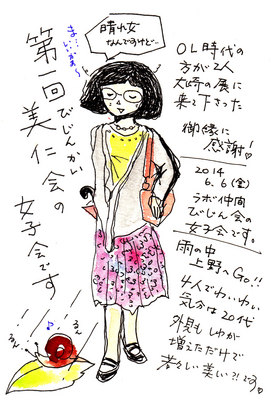 第一回
美仁会の
びじんかい
女子会です
ま…いっか〜
晴れ女
なんですけど…
OL時代の
方が2人
来て下さった
御縁に
感謝!
2014
6.6(金)
ラボ仲間
びじん会の
女子会です。
雨の中
上野へGO!!
4人でわいわい
気分は20代
外見もしわが
増えただけで
若々しい美い?!です。